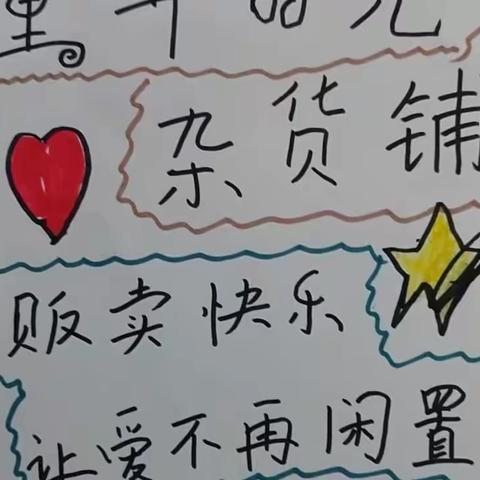 杂货铺
贩卖快乐
让爱不再闲置